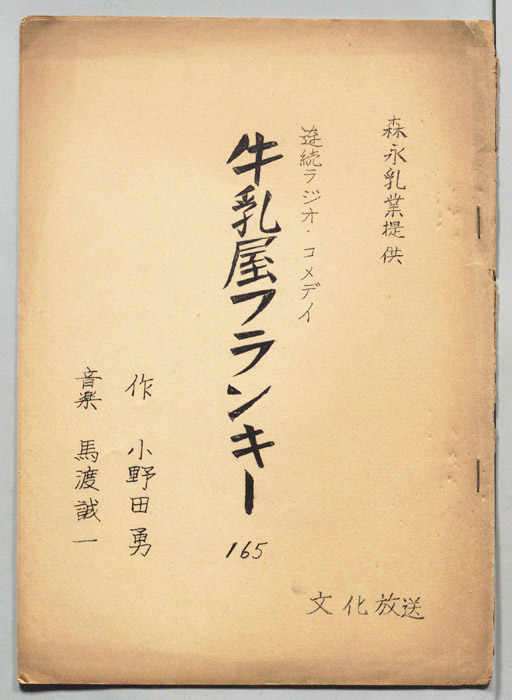 森永乳業提供
連続ラジオ・コメデイ
牛乳屋フランキー
165
作 小野田勇
音楽 馬渡誠一
文化放送